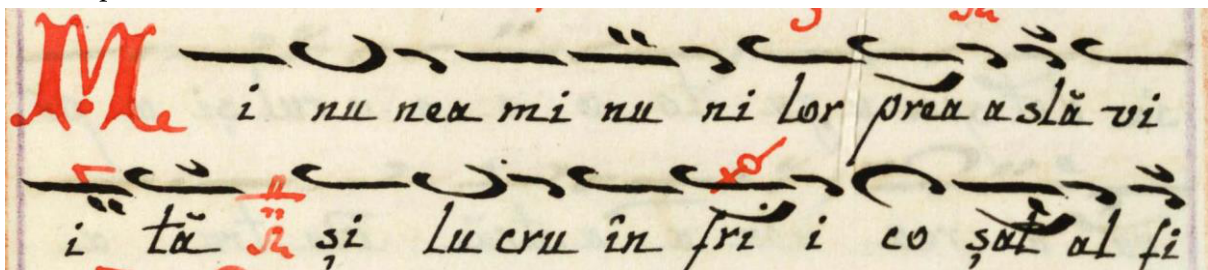 Mi nu nea mi nu ni lor prea a slă vi
i tă și lu cru în fri i co șat al fi